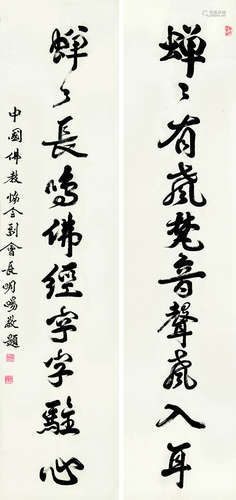 蟬々有處梵音聲處入耳
蟬々長鳴佛經字字駐心
中國佛教協会副會長明暘敬題